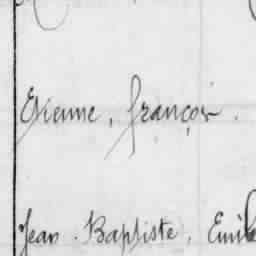 Etienne, françois.
Jean Baptiste, Emile